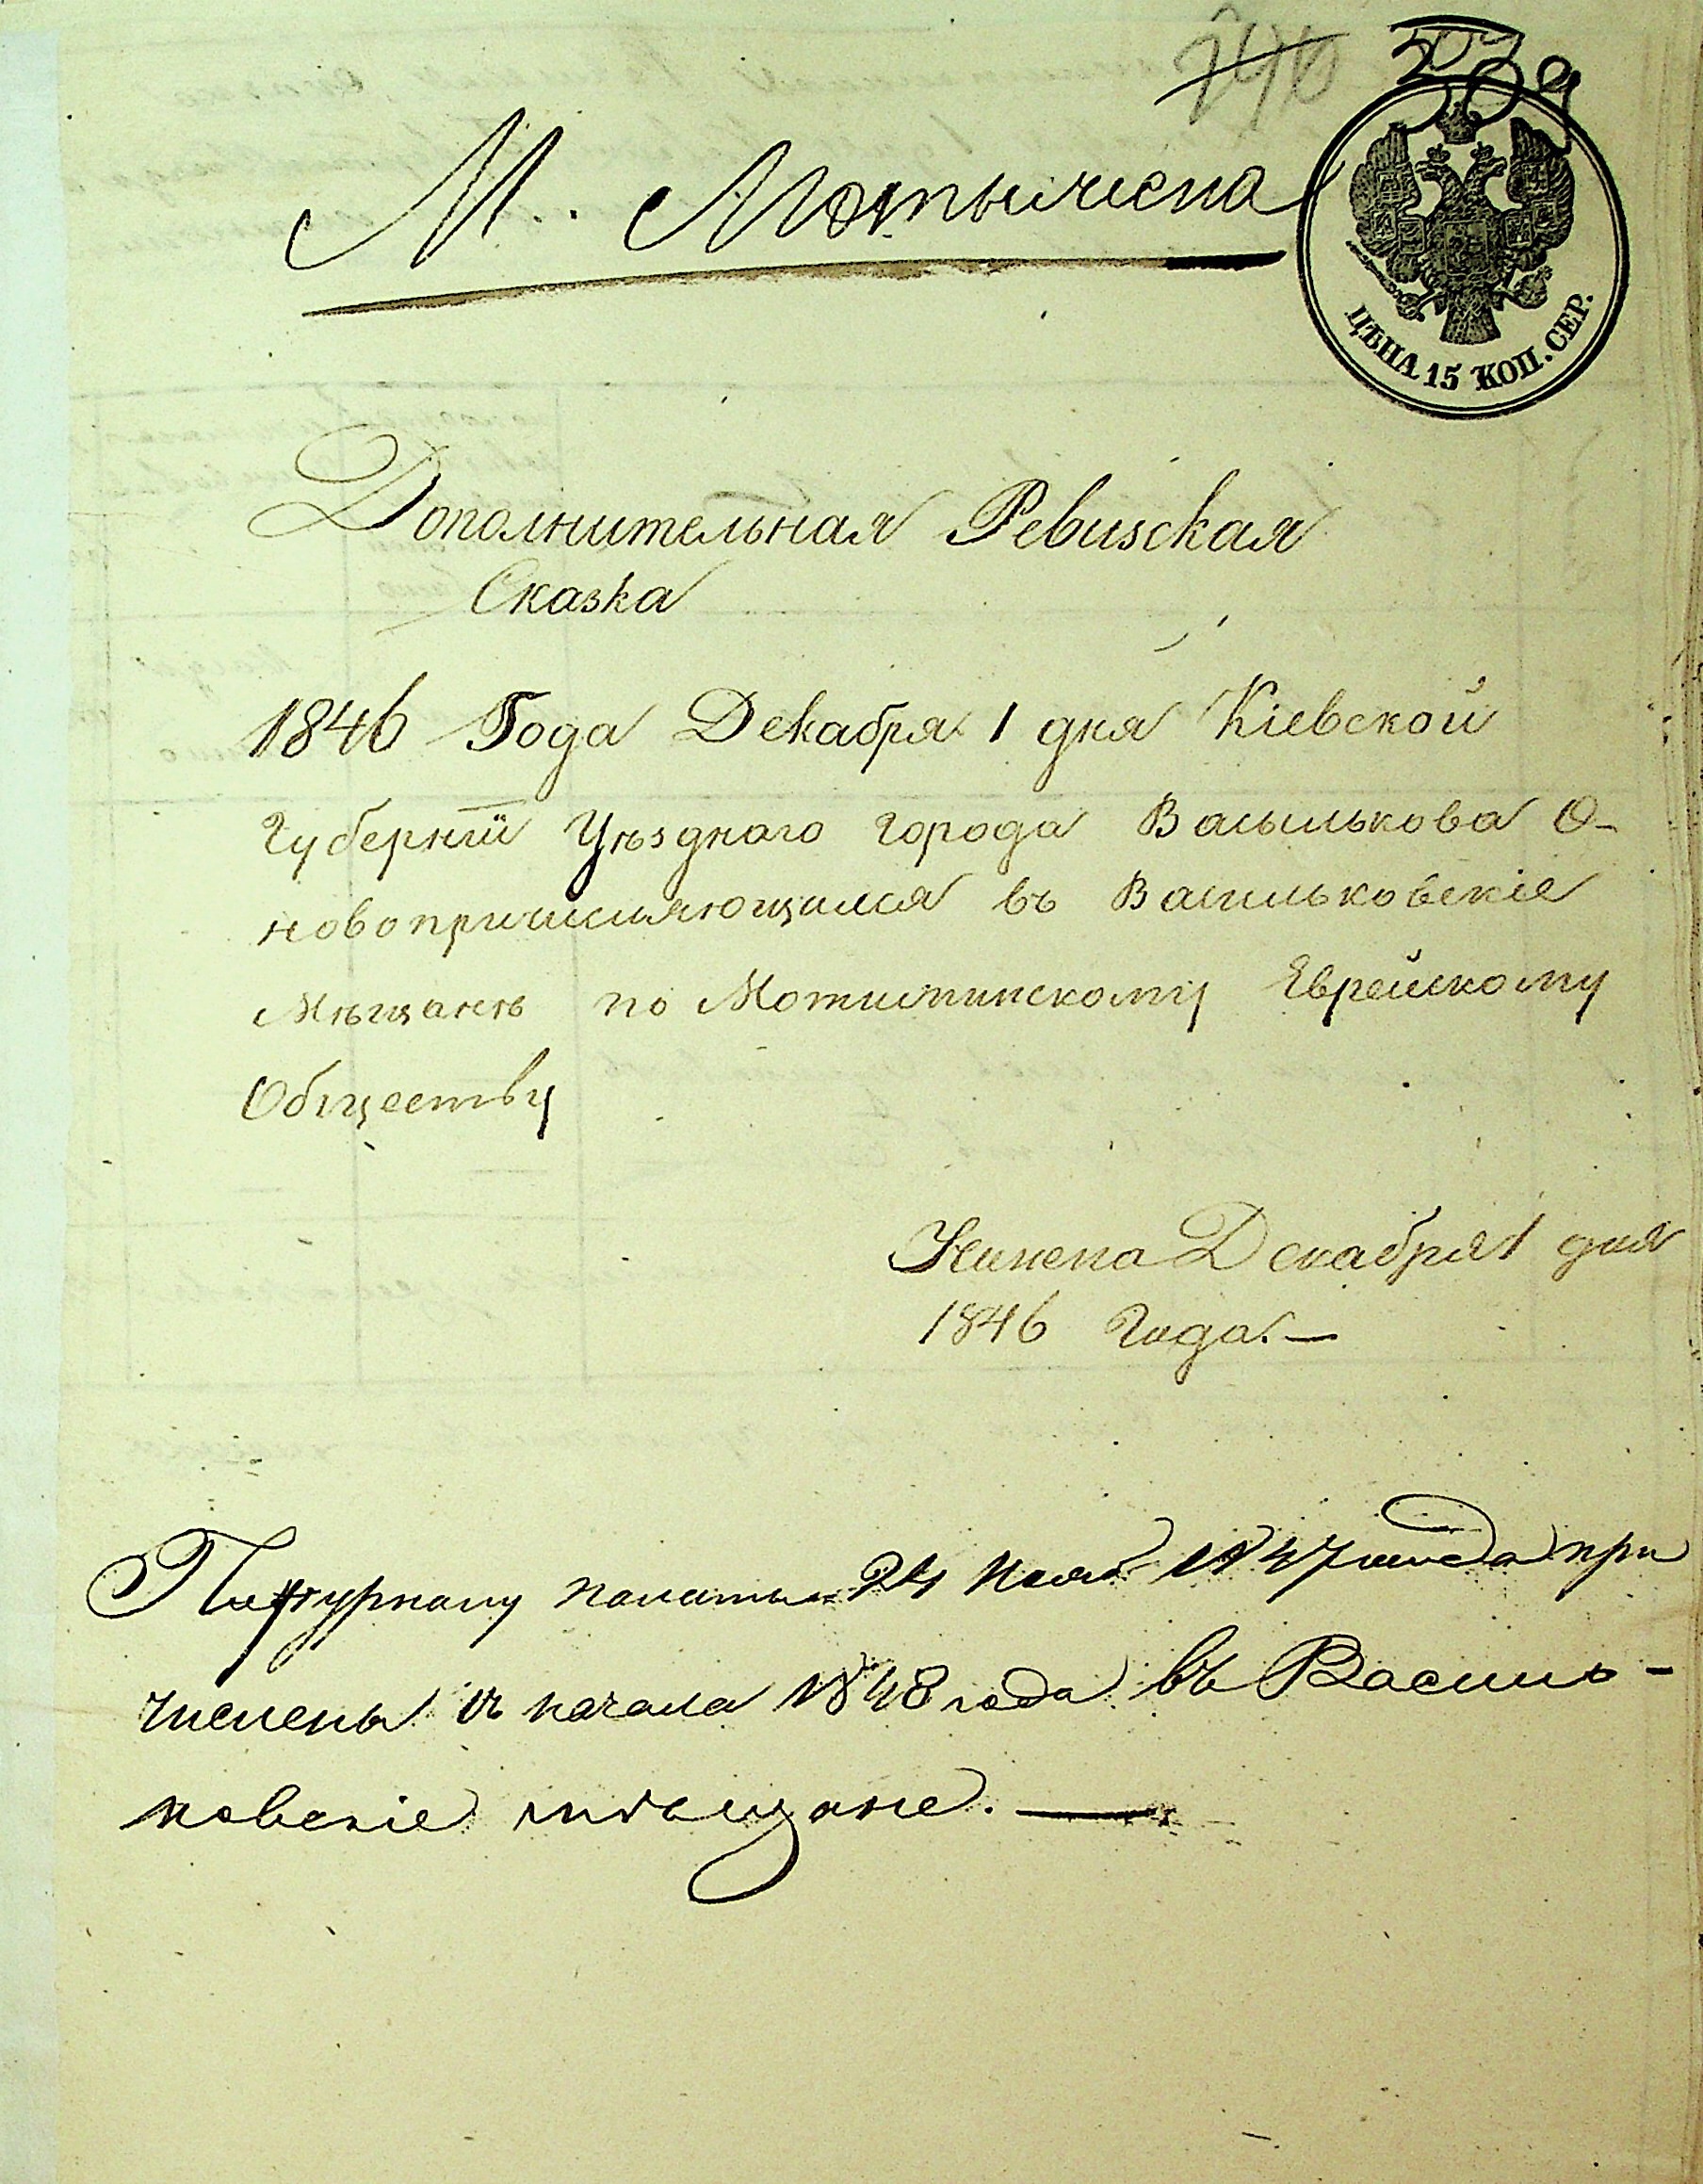 740 509
М. Мотыжена
ЦѢНА 15 КОП. СЕР.
Дополнительная Ревизская
Сказка
1846 Года Декабря 1 дня Кіевской
Губерніи Уѣзднаго города Василькова О
новопричисляющихся въ Васильковскіе
Мѣщанѣ по Мотижинскому Еврейскому
Обществу
Декабря 1 дня
1846 Года. —
По журналу палаты 24 Нояб 1847 года при
числены съ начала 1848 года въ Василь-
ковскіе мѣщане. —